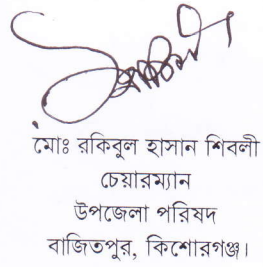 মোঃ রকিবুল হাসান শিবলী
চেয়ারম্যান
উপজেলা পরিষদ
বাজিতপুর, কিশোরগঞ্জ।